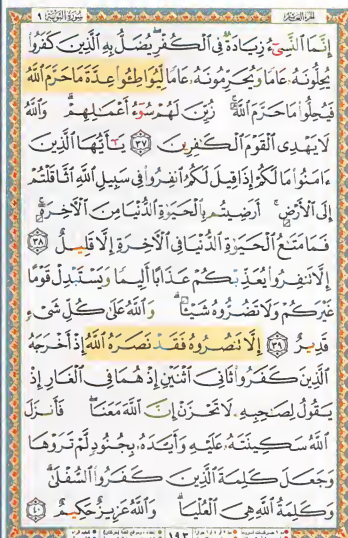 الجزء العاشر سورة التوبة ٩
إِنَّمَا ٱلنَّسِىٓءُ زِيَادَةٌ فِى ٱلْكُفْرِ يُضَلُّ بِهِ ٱلَّذِينَ كَفَرُوا۟
يُحِلُّونَهُۥ عَامًا وَيُحَرِّمُونَهُۥ عَامًا لِّيُوَاطِـُٔوا۟ عِدَّةَ مَا حَرَّمَ ٱللَّهُ
فَيُحِلُّوا۟ مَا حَرَّمَ ٱللَّهُ ۚ زُيِّنَ لَهُمْ سُوٓءُ أَعْمَـٰلِهِمْ ۗ وَٱللَّهُ
لَا يَهْدِى ٱلْقَوْمَ ٱلْكَـٰفِرِينَ ٣٧ يَـٰٓأَيُّهَا ٱلَّذِينَ
ءَامَنُوا۟ مَا لَكُمْ إِذَا قِيلَ لَكُمُ ٱنفِرُوا۟ فِى سَبِيلِ ٱللَّهِ ٱثَّاقَلْتُمْ
إِلَى ٱلْأَرْضِ ۚ أَرَضِيتُم بِٱلْحَيَوٰةِ ٱلدُّنْيَا مِنَ ٱلْـَٔاخِرَةِ ۚ
فَمَا مَتَـٰعُ ٱلْحَيَوٰةِ ٱلدُّنْيَا فِى ٱلْـَٔاخِرَةِ إِلَّا قَلِيلٌ ٣٨
إِلَّا تَنفِرُوا۟ يُعَذِّبْكُمْ عَذَابًا أَلِيمًا وَيَسْتَبْدِلْ قَوْمًا
غَيْرَكُمْ وَلَا تَضُرُّوهُ شَيْـًٔا ۗ وَٱللَّهُ عَلَىٰ كُلِّ شَىْءٍ
قَدِيرٌ ٣٩ إِلَّا تَنصُرُوهُ فَقَدْ نَصَرَهُ ٱللَّهُ إِذْ أَخْرَجَهُ
ٱلَّذِينَ كَفَرُوا۟ ثَانِىَ ٱثْنَيْنِ إِذْ هُمَا فِى ٱلْغَارِ إِذْ
يَقُولُ لِصَـٰحِبِهِۦ لَا تَحْزَنْ إِنَّ ٱللَّهَ مَعَنَا ۖ فَأَنزَلَ
ٱللَّهُ سَكِينَتَهُۥ عَلَيْهِ وَأَيَّدَهُۥ بِجُنُودٍ لَّمْ تَرَوْهَا
وَجَعَلَ كَلِمَةَ ٱلَّذِينَ كَفَرُوا۟ ٱلسُّفْلَىٰ ۗ
وَكَلِمَةُ ٱللَّهِ هِىَ ٱلْعُلْيَا ۗ وَٱللَّهُ عَزِيزٌ حَكِيمٌ ٤٠
١٩٣